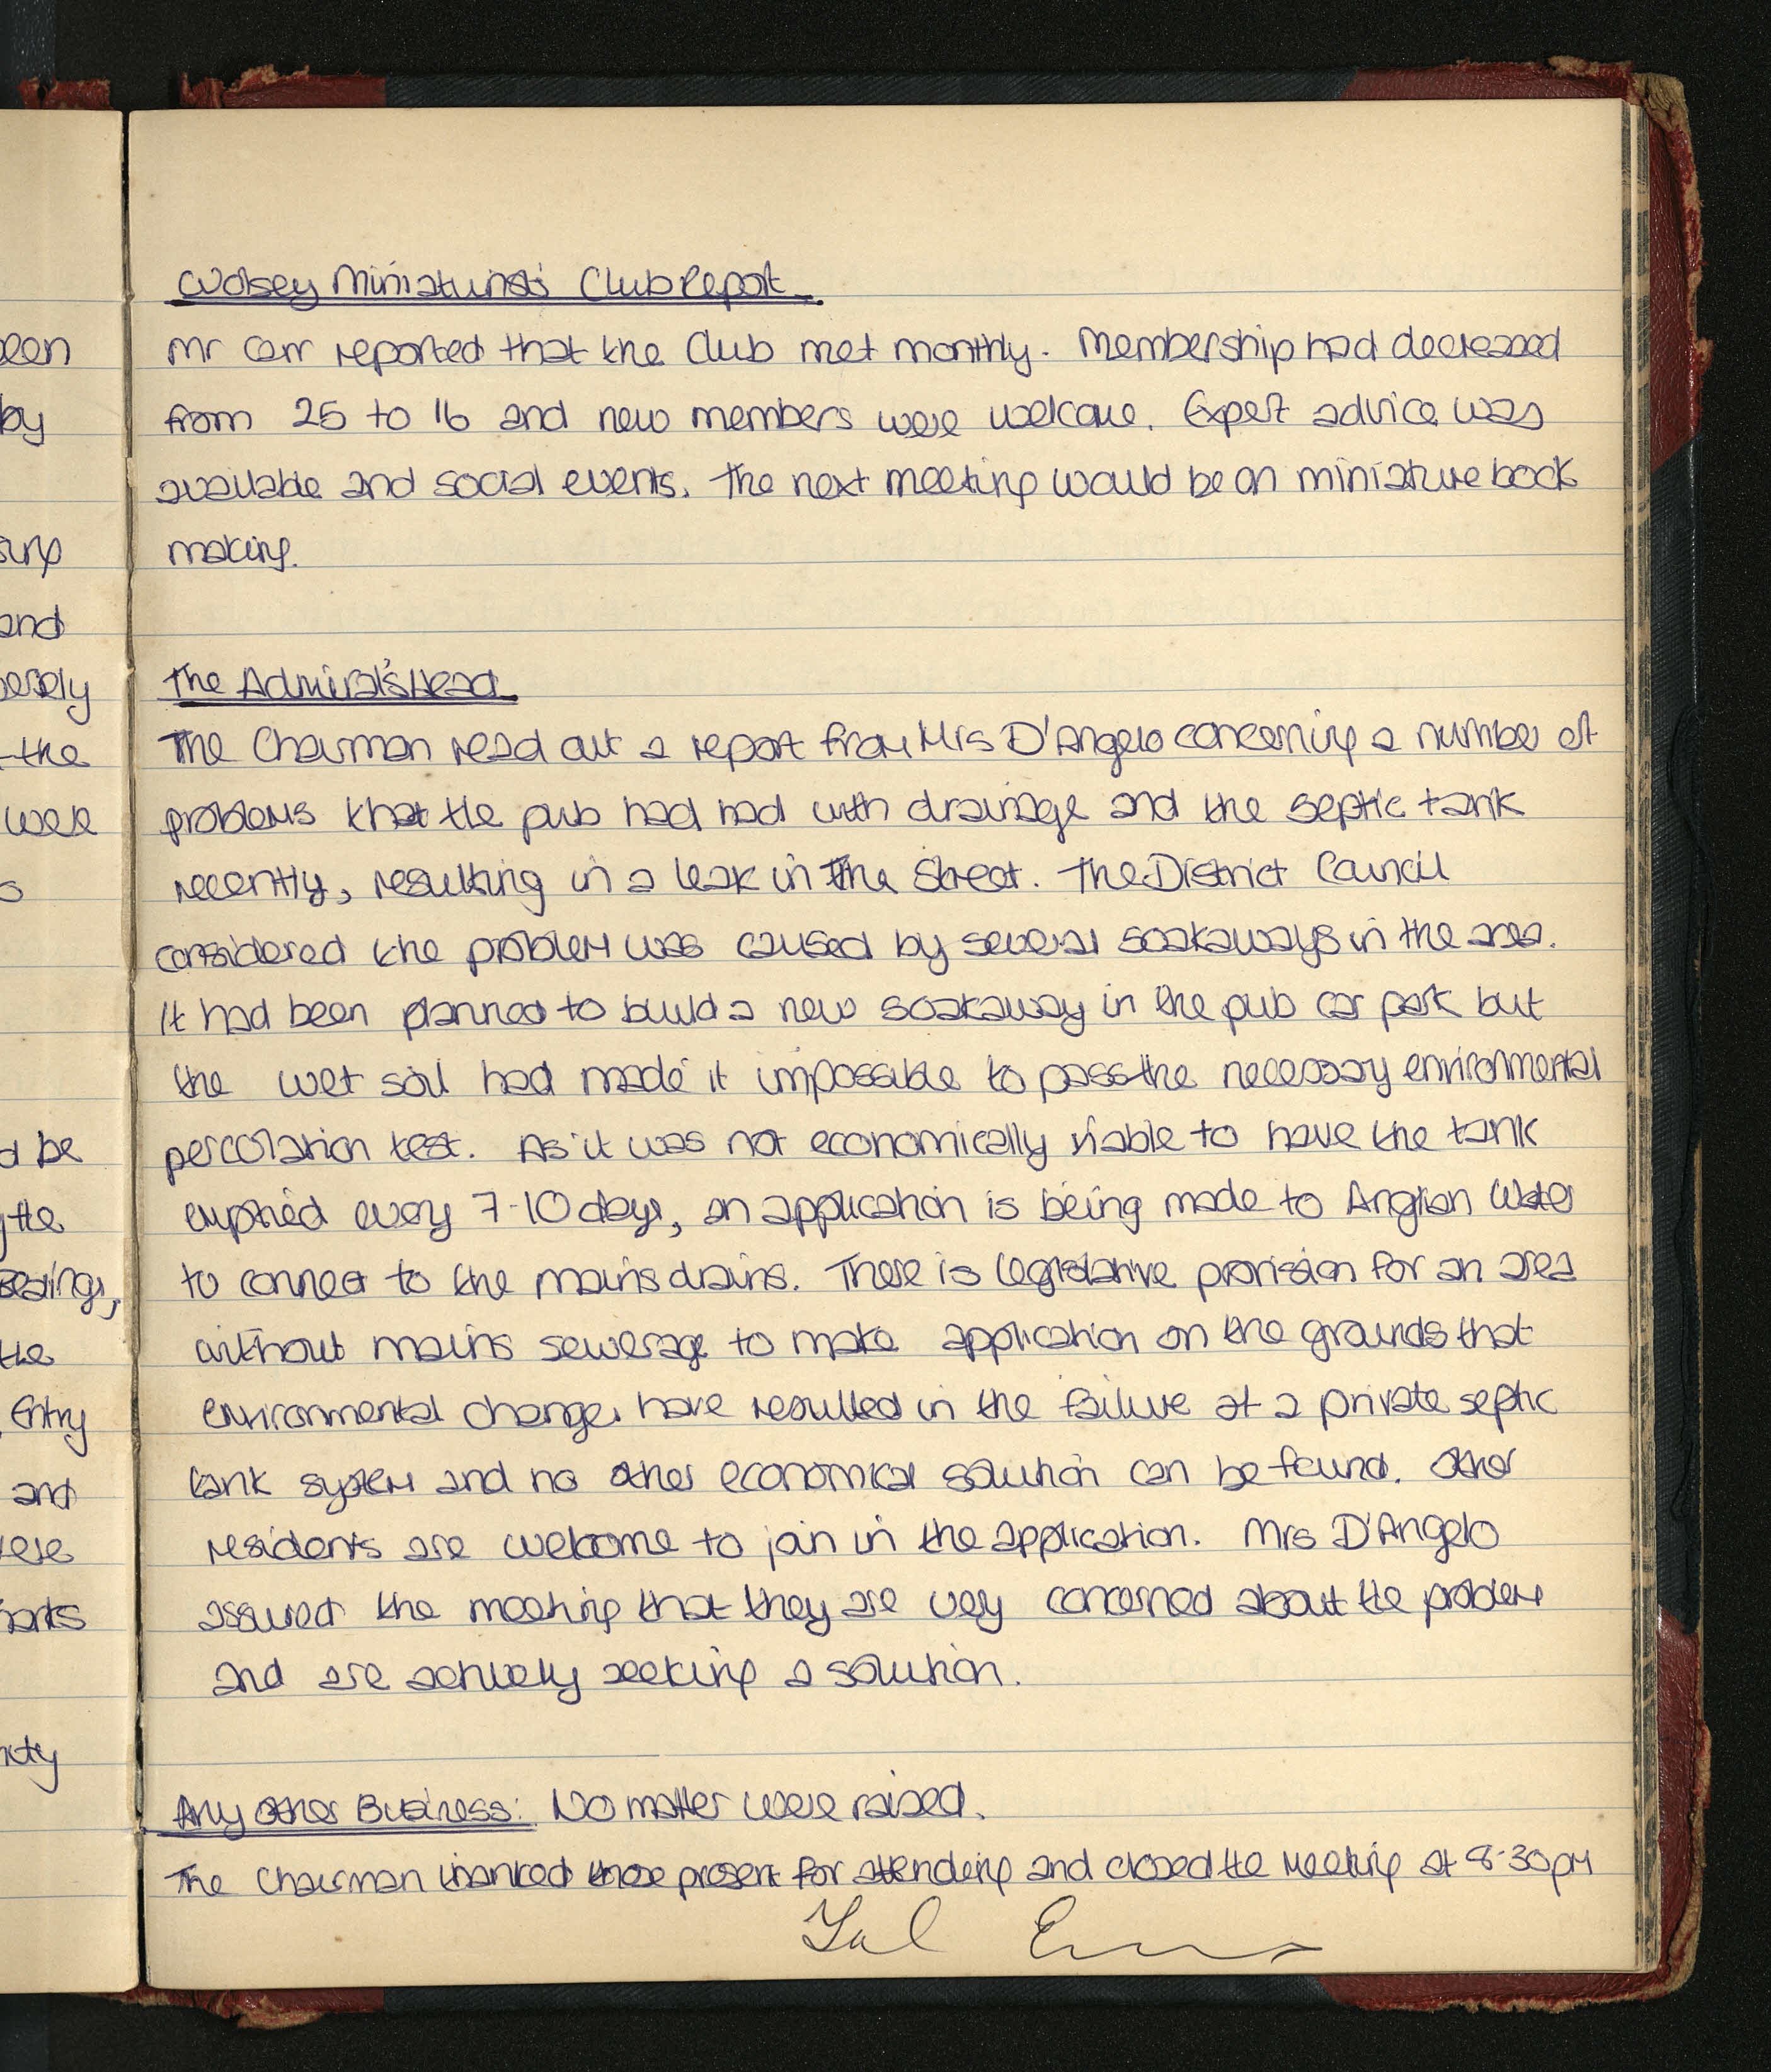 Wolsey Miniaturists' Club Report
Mr Carr reported that the Club met monthly. Membership had decreased
from 25 to 16 and new members were welcome. Expert advice was
available and social events. The next meeting would be on miniature book
making.
The Admiral's Head
The Chairman read out a report from Mrs D'Angelo concerning a number of
problems that the pub had had with drainage and the septic tank
recently, resulting in a leak in the Street. The District Council
considered the problem was caused by several soakaways in the area.
It had been planned to build a new soakaway in the pub car park but
the wet soil had made it impossible to pass the necessary environmental
percolation test. As it was not economically viable to have the tank
emptied every 7-10 days, an application is being made to Anglian Water
to connect to the mains drains. There is legislative provision for an area
without mains sewerage to make application on the grounds that
environmental changes have resulted in the failure of a private septic
tank system and no other economical solution can be found. Other
residents are welcome to join in the application. Mrs D'Angelo
assured the meeting that they are very concerned about the problem
and are actively seeking a solution.
Any Other Business: No matter were raised.
The Chairman thanked those present for attending and closed the Meeting at 8-30pm
een
by
and
the
were
s
d be
the
the
Entry
and